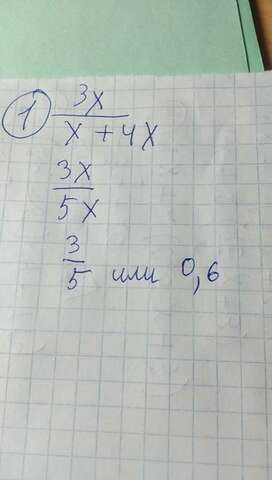 1 3x
x + 4x
3x
5x
3
5 или 0,6